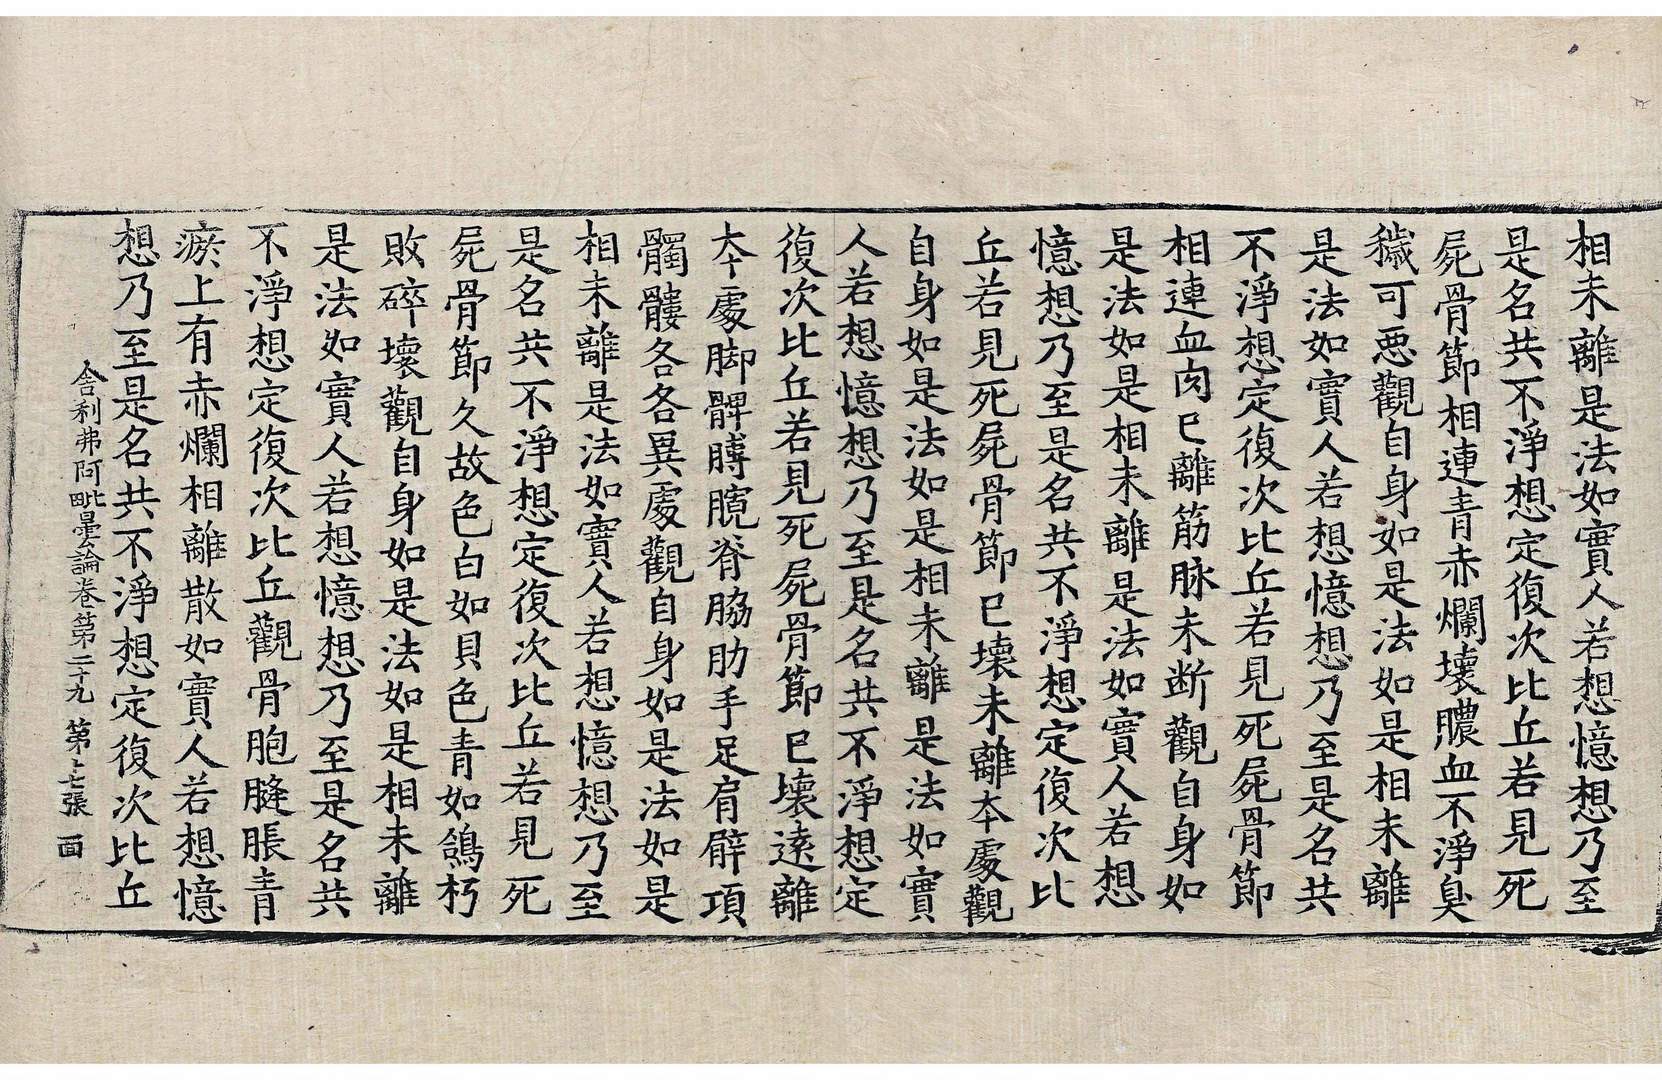 相未離是法如實人若想憶想乃至
是名共不淨想定復次比丘若見死
屍骨節相連青赤爛壞膿血不淨臭
穢可惡觀自身如是法如是相未離
是法如實人若想憶想乃至是名共
不淨想定復次比丘若見死屍骨節
相連血肉已離筋脉未断觀自身如
是法如是相未離是法如實人若想
憶想乃至是名共不淨想定復次比
丘若見死屍骨節已壞未離本處觀
自身如是法如是相未離是法如實
人若想憶想乃至是名共不淨想定
復次比丘若見死屍骨節已壞遠離
本處脚髀膞臗脊脇肋手足肩臂項
髑髏各各異處觀自身如是法如是
相未離是法如實人若想憶想乃至
是名共不淨想定復次比丘若見死
屍骨節久故色白如貝色青如鴿朽
敗碎壞觀自身如是法如是相未離
是法如實人若想憶想乃至是名共
不淨想定復次比丘觀骨胞膖脹青
瘀上有赤爛相離散如實人若想憶
想乃至是名共不淨想定復次比丘
舍利弗阿毗曇論卷第二十九 第十七張 面